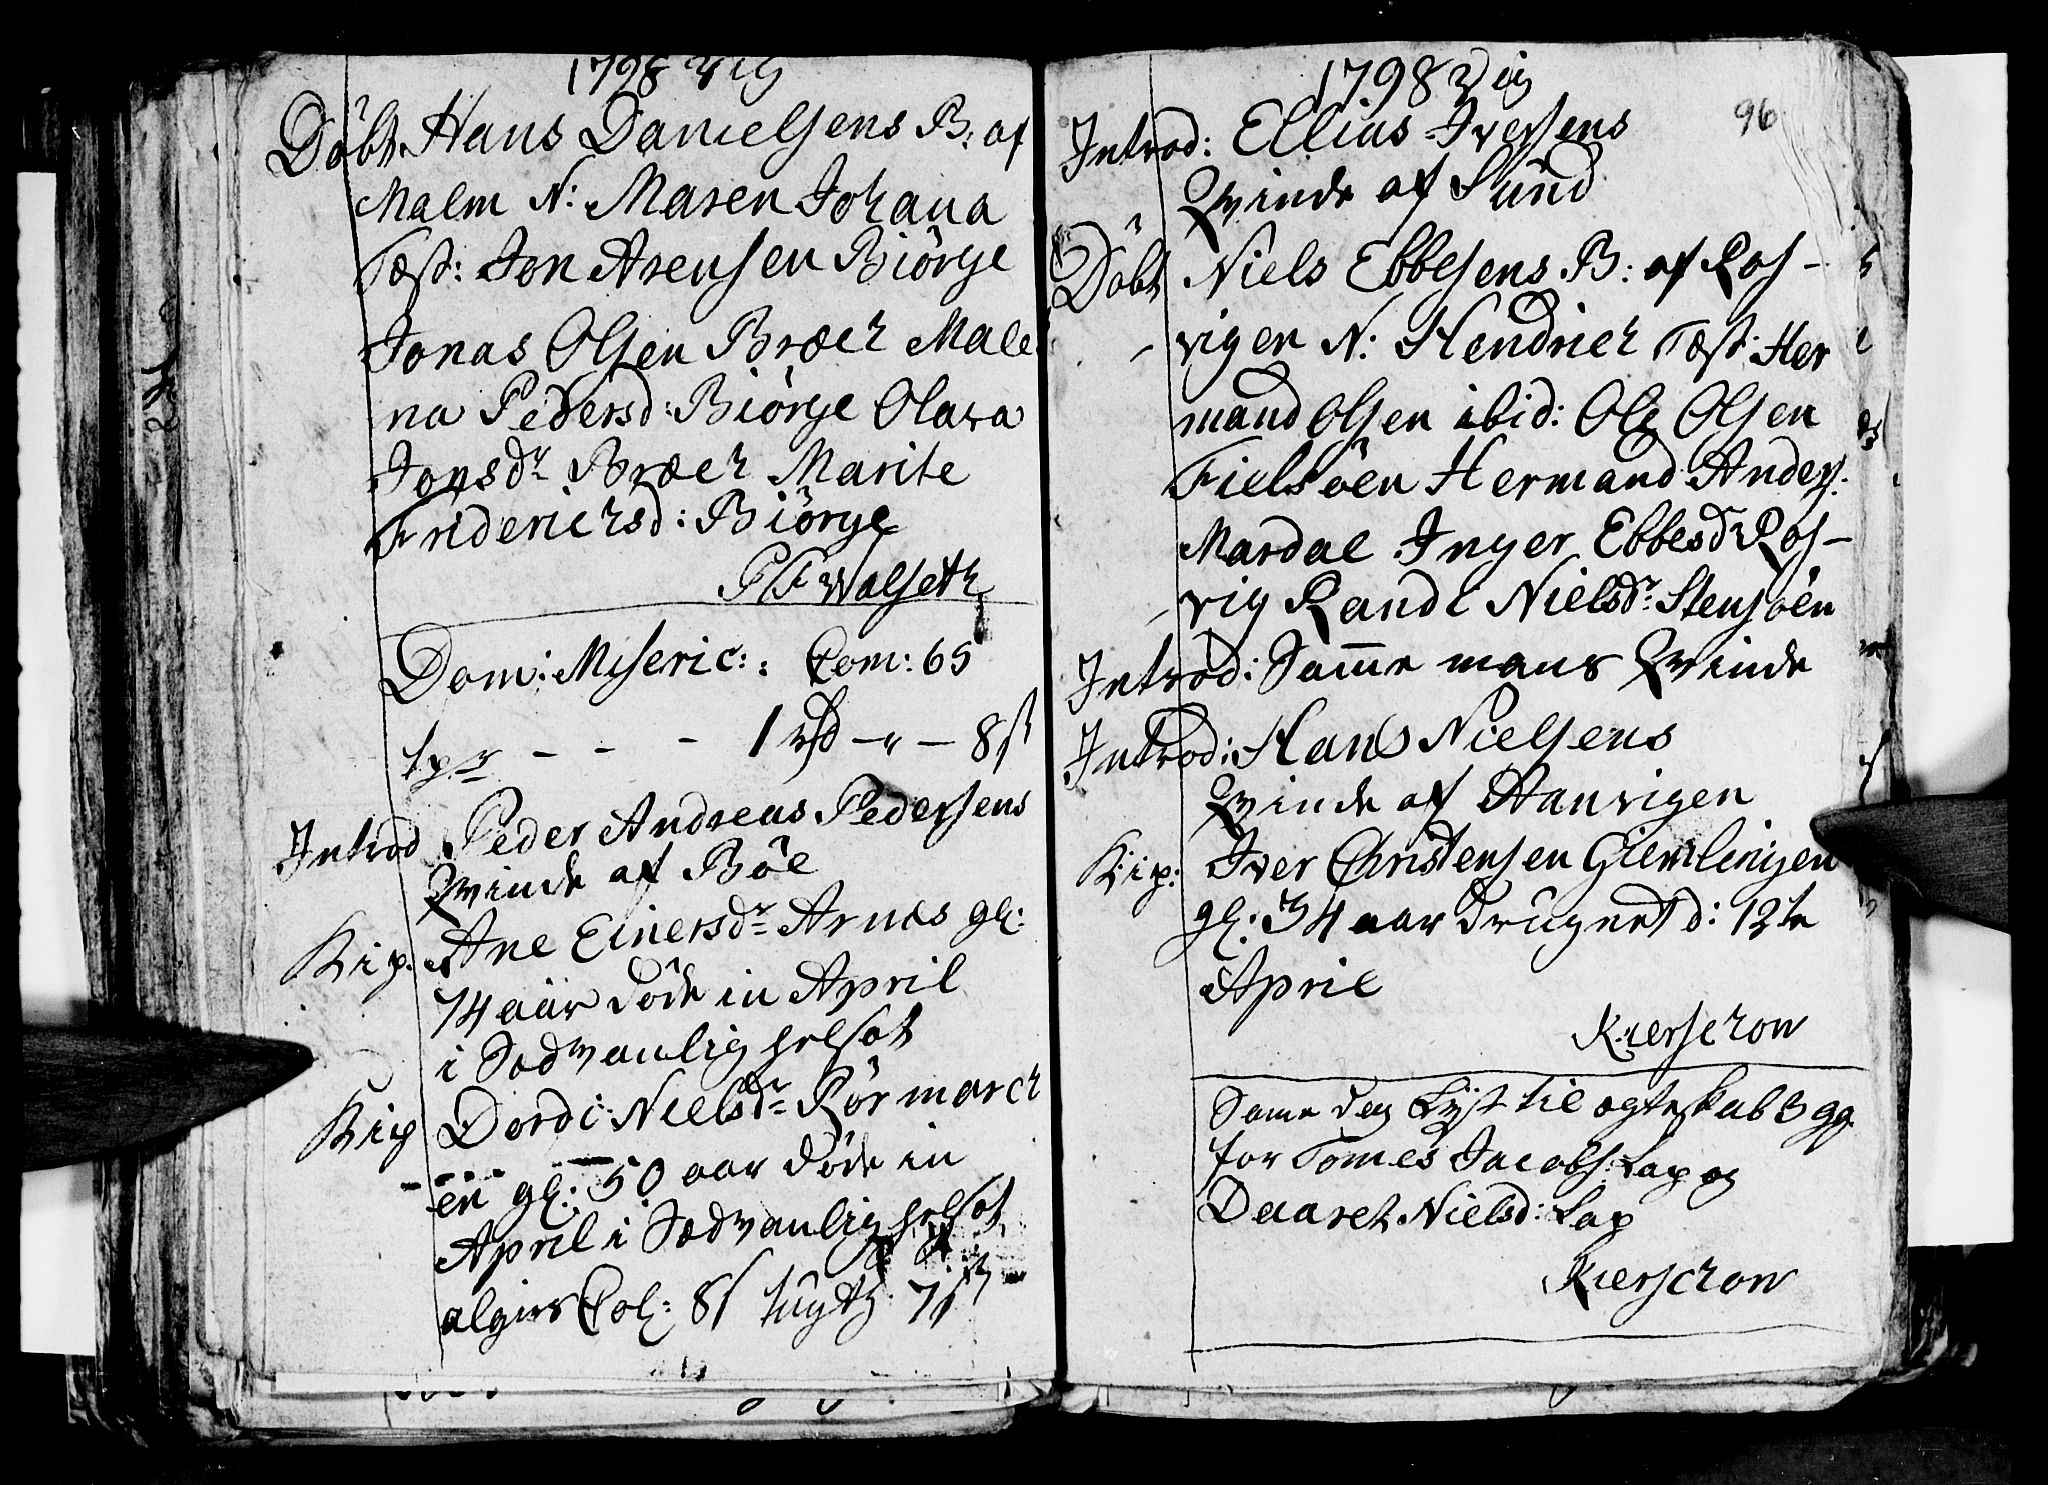 1798 Vig
Döbt Hans Danielsens B: af
Malm N: Maren Johana
Test: Jon Arensen Biörge
Jonas Olsen Bræch Male
na Pedersd: Biörge Olava
Jonsdr Bræch Marite
Friderichsd: Biörge
Walseth
Dom: Miseric: : Com: 65
1 rd – " – 8 s
Introd Peder Andreas Pedersens
Qvinde af Böe
Kip. Ane Einersdr Arnes gl:
74 aar döde in April
i Sædvanlig helsot
Kip Dordi Nielsdr Rörmarch
en gl: 50 aar döde in
April i Sædvanlig helsot
Col: 8 s tugth 7 s
1798 Vig
96
Introd: Ellias Iversens
Qvinde af Sund
Döbt Niels Ebbesens B: af Ros-
vigen N: Hendrich Test: Her
mand Olsen ibid: Ole Olsen
Fielsöen Hermand Anders:
Mardal Inger Ebbesd Ros-
vig Randi Nielsdr Stensöen
Introd: Samme mans Qvinde
Introd: Hans Nielsens
Qvinde af Aanvigen
Kip: Iver Christensen Giemlingen
gl: 34 aar drugnet d: 12te
April
Kierschow
Same dag Lyst til ægteskab 3 gg
for Tomes Jacobs: Lap og
Daaret Nielsd: Lap
Kierschow